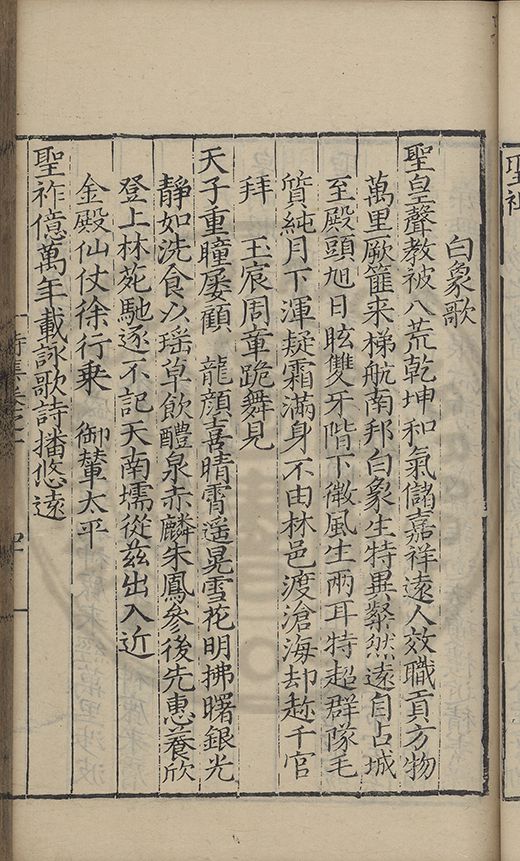 白象歌
聖皇聲教被八荒乾坤和氣儲嘉祥遠人效職貢方物
萬里厥篚来梯航南邦白象生特異粲然遠自占城
至殿頭旭日眩雙牙階下微風生兩耳特超群隊毛
質純月下渾疑霜滿身不由林邑渡滄海却趂千官
拜 玉宸周章跪舞見
天子重瞳屡顧 龍顔喜晴霄遥晃雪花明拂曙銀光
静如洗食以瑶草飲醴泉赤麟朱鳳參後先惠養欣
登上林苑馳逐不記天南壖從兹出入近
金殿仙仗徐行乗 御輦太平
聖祚億萬年載詠歌詩播悠遠
聖祖